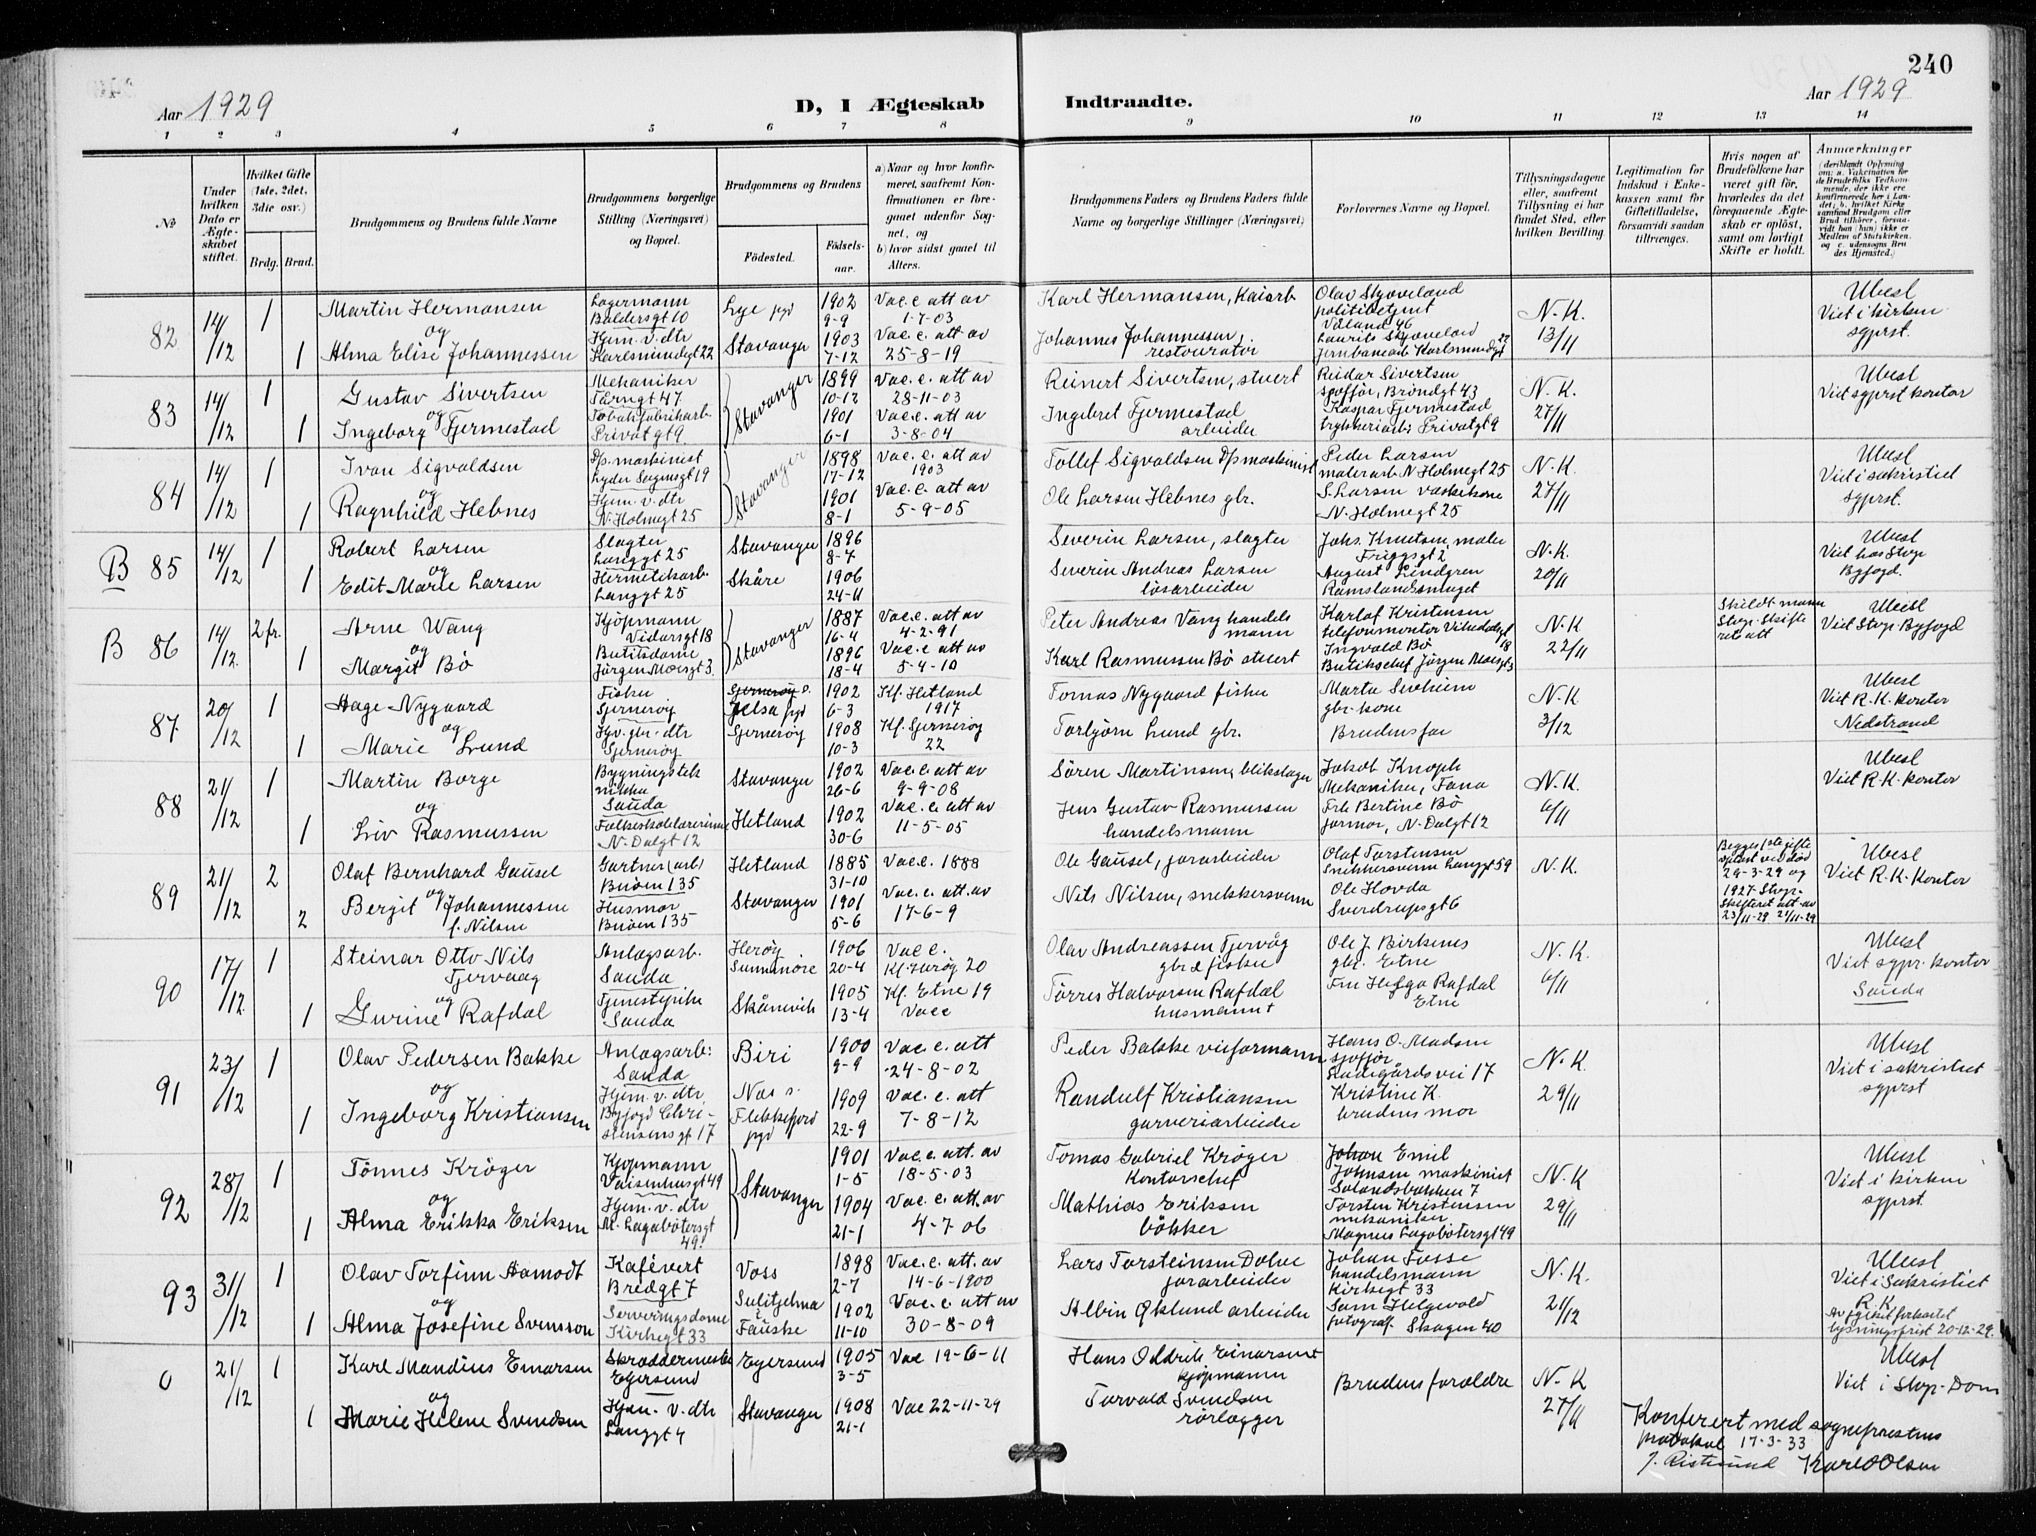 240
Aar 1929
D, I Ægteskab Indtraadte.
Aar 1929
1 2 3 4 5 6 7 8 9 10 11 12 13 14
№
Under hvilken Dato er Ægteskabet stiftet.
Hvilket Gifte (1ste, 2det, 3die osv.)
Brdg. Brud.
Brudgommens og Brudens fulde Navne
Brudgommens borgerlige Stilling (Næringsvei) og Bopæl.
Brudgommens og Brudens
Födested.
Födsels-aar.
a) Naar og hvor konfirmeret, saafremt Konfirmationen er foregaaet udenfor Sognet, og
b) hvor sidst gaaet til Alters.
Brudgommens Faders og Brudens Faders fulde Navne og borgerlige Stillinger (Næringsvei)
Forlovernes Navne og Bopæl.
Tillysningsdagene eller, saafremt Tillysning ei har fundet Sted, efter hvilken Bevilling.
Legitimation for Indskud i Enkekassen samt for Giftetilladelse, forsaavidt saadan tiltrænges.
Hvis nogen af Brudefolkene har været gift før, hvorledes da det foregaaende Ægteskab er oplöst, samt om lovligt Skifte er holdt.
Anmerkninger
82 14/12 1 Martin Hermansen
og
1 Alma Elise Johannessen
Lagermann
Baldersgt 10
Hjem. v. dtr
Karlsmindegt 22
Lye pgd 1902 9-9 Vac. e. att av 1-7-03
Stavanger 1903 7-12 Vac. e. att. av 25-8-19
Karl Hermansen, Kaiarb
Johannes Johannessen, restauratør
Olav Skjoveland
politibetjent
Våland 46
N.K. 13/11
Ubesl
Viet i kirken
sgprst.
83 14/12 1 Gustav Sivertsen
og
1 Ingeborg Fjermestad
Mekaniker
Tårngt 47
Tobaksfabrikarb.
Privatgt 9
Stavanger
1899 10-12 Vac. e. att av 28-11-03
1901 6-1 Vac. e. att av 3-8-04
Reinert Sivertsen, stuert
Ingebret Fjermestad
arbeider
Reidar Sivertsen
sjofför, Bröndgt 43
Kaspar Fjermestad
trykkeriarb. Privatgt 9
N.K. 27/11
Ubesl
Viet sgprst kontor
84 14/12 1 Ivan Sigvaldsen
og
1 Ragnhild Hebnes
Dp.maskinist
Lyder Sagensgt 19
Hjem. v. dtr
N. Holmegt 25
Stavanger
1898 17-12 Vac. e. att av 1903
1901 8-1 Vac. e. att av 5-9-05
Tollef Sigvaldsen Dp maskinist
Ole Larsen Hebnes gbr.
Peder Larsen
malerarb. N Holmegt 25
S. Larsen vaskekone
N. Holmegt 25
N.K. 27/11
Ubesl
Viet i sakristiet
sgprst.
B 85 14/12 1 Robert Larsen
og
1 Edit Marie Larsen
Slagter
Langgt 25
Hermetikarb.
Langgt 25
Stavanger 1896 8-7
Skåre 1906 24-11
Severin Larsen, slagter
Severin Andreas Larsen
løsarbeider
Johs. Knutsen, maler
Friggsgt 2
August Lindgren
N.K. 20/11
Ubesl
Viet hos Stvgr
Byfogd.
B 86 14/12. 2 fr. Arne Wang
og
1 Margit Bø
Kjöpmann
Vidarsgt 18
Butiksdame
Jörgen Moesgt 3.
Stavanger
1887 16-4 Vac. e. att av 4-2-91
1896 18-4 Vac. e att av 5-4-10
Peter Andreas Vang handelsmann
Karl Rasmussen Bø stuert
Karlof Kristensen
telefonmontør
Ingvald Bø
Butikschef Jörgen Moesgt 3
N.K 22/11
Skildt mann
Stvgr. Skifteret att
Ubesl
Viet Stvgr. Byfogd
87 20/12 1 Aage Nygaard
og
1 Marie Lund
Fisker
Sjernerøy
Hjv. gbr. dtr
Sjernerøy
Jelsa pgd 1902 6-3 Kf. Hetland 1917
Sjernerøy 1908 10-3 Kf. Sjernerøy 22
Tomas Nygaard fisker
Torbjörn Lund gbr.
gbr. kone
Brudens far
N.K 3/12
Ubesl
Viet R.K. kontor
Nedstrand
88 21/12 1 Martin Borge
og
1 Liv Rasmussen
Bygningstekniker
Sauda
Folkeskolelærerinne
N. Dalgt 12
Stavanger 1902 26-6 Vac. e att av 9-9-08
Hetland 1902 30-6 Vac. e. att av 11-5-05
Sören Martinsen, blikslager
Jens Gustav Rasmussen
handelsmann
Jakob Knoph
Mekaniker, Fana
Frk Bertine Bö
farmor, N. Dalgt 12
N.K. 6/11
Ubesl
Viet R.K. kontor
89 21/12 2 Olaf Bernhard Gausel
og
2 Bergit Johannessen
f. Nilsen
Gartner (arb)
Buöen 135
Husmor
Buöen 135
Hetland 1885 31-10 Vac. e. 1888
Stavanger 1901 5-6 Vac. e. att. av 17-6-9
Ole Gausel, jorarbeider
Nils Nilsen, snekkersvenn
Olaf Torstensen
Snekkersvenn Langgt 59
Ole Hovda
Sverdrupsgt 6
N.K.
Begges 1ste gifte
opløst ved død
29-3-29 og
1927. Stvgr.
Skifteret att. av
23/11-29 27/11-29
Ubesl
Viet R.K. Kontor
90 17/12. 1 Steinar Otto Nils
Tjervaag
og
1 Gurine Rafdal
Anlagsarb.
Sauda
Tjenestpike
Sauda
Herøy
Sunnmöre 1906 20-4 Vac e. Kf. Herøy 20
Skånevik 1905 13-4 Kf. Etne 19 Vacc
Olav Andreassen Tjervåg
gbr & fisker
Törres Halvorsen Rafdal
husmann +
Ole J. Birkenes
gbr. Etne
Fru Helga Rafdal
Etne
N.K. 6/11
Ubesl
Viet sgpr. kontor
Sauda
91 23/12 1 Olav Pedersen Bakke
og
1 Ingeborg Kristiansen
Anlagsarb.
Sauda
Hjem. v. dtr
Byfogd Christensensgt 17
Biri 1900 9-9 Vac. e. att 24-8-02
Flekkefjord pgd 1909 22-9 Vac. e. att 7-8-12
Peder Bakke veiformann
Randulf Kristiansen
garveriarbeider
Hans O. Madsen
sjofför
Kristine K.
brudens mor
N.K. 29/11
Ubesl
Viet i sakristiet
sgprst
92 28/12 1 Tönnes Kröger
og
1 Alma Erikka Eriksen
Kjöpmann
Vaisenhusgt 49
Hjem. v. dtr
M. Lagabötersgt
49.
Stavanger
1901 1-5 Vac. e. att. av 18-5-03
1904 21-1 Vac. e. att. av 4-7-06
Tomas Gabriel Kröger
Kontorschef
Mathias Eriksen
bökker
Johan Emil
Johnsen maskinist
Solandsbakken 7
Torsten Kristensen
mekaniker
Magnus Lagabötersgt 49
N.K 29/11
Ubesl
Viet i kirken
sgprst.
93 31/12 1 Olav Torfinn Aamodt
og
1 Alma Josefine Svensson
Kafévert
Bredgt 7
Serveringsdame
Kirkegt 33
Voss 1898 2-7 Vac. e. att. av 14-6-1900
Sulitjelma
i
Fauske 1902 11-10 Vac. e. att av 30-8-09
Lars Torsteinsen Dolve
jorarbeider
Albin Øklund arbeider
Johan Fosse
handelsmann
Kirkegt 33
Sam Helgevold
fotograf. Skagen 40
N.K. 21/12
Ubesl
Viet i Sakristiet
R.K.
lysningsfrist 20-12-29.
0 21/12 1 Karl Mandius Einarsen
og
1 Marie Helene Svendsen
Skreddermester
Egersund
Hjem. v. dtr
Langgt 4
Egersund 1905 3-5 Vac 19-6-11
Stavanger 1908 21-1 Vac 22-11-29
Hans Oldrik Einarsen +
kjöpmann
Torvald Svendsen
rørlegger
Brudens foreldre
N.K 27/11
Ubesl
Viet i Stvgr. Dom
Konferert med sogneprestens
protokol 17-3-33
Karl O Olsen